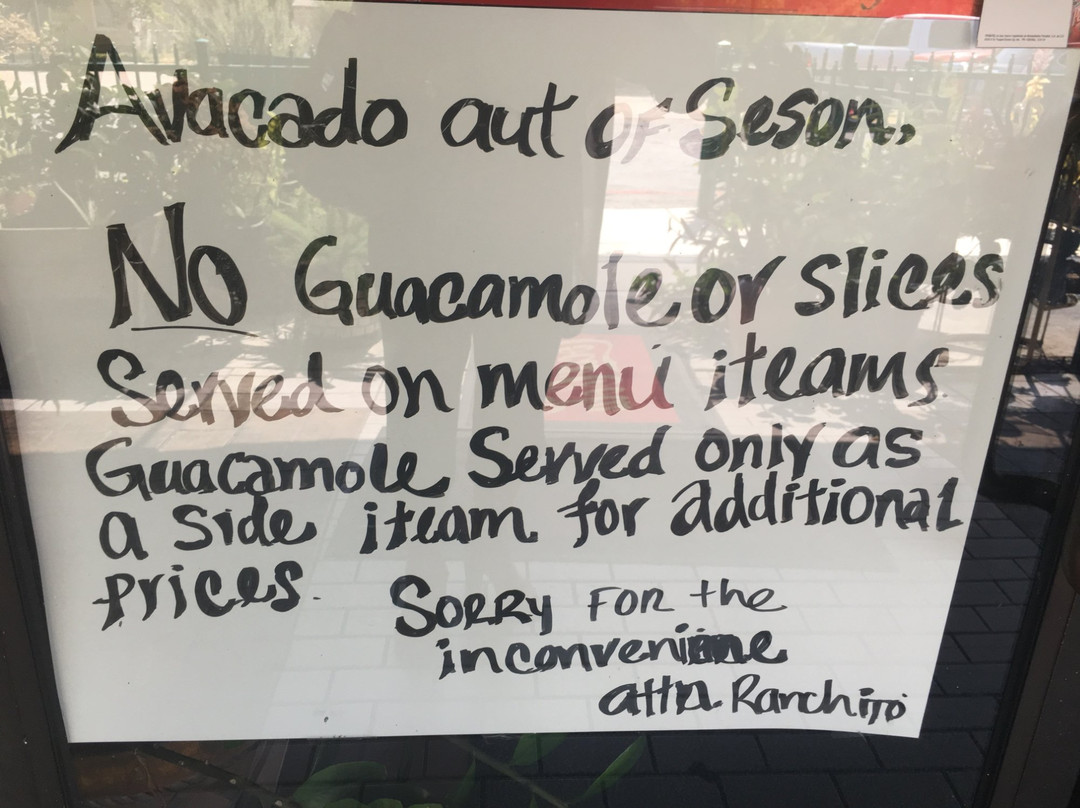 Avacado aut of Seson,
No Guacamole or slices
Served on menu iteams
Guacamole Served only as
a side iteam for additional
prices.
Sorry for the
inconvenine
attn Ranchito